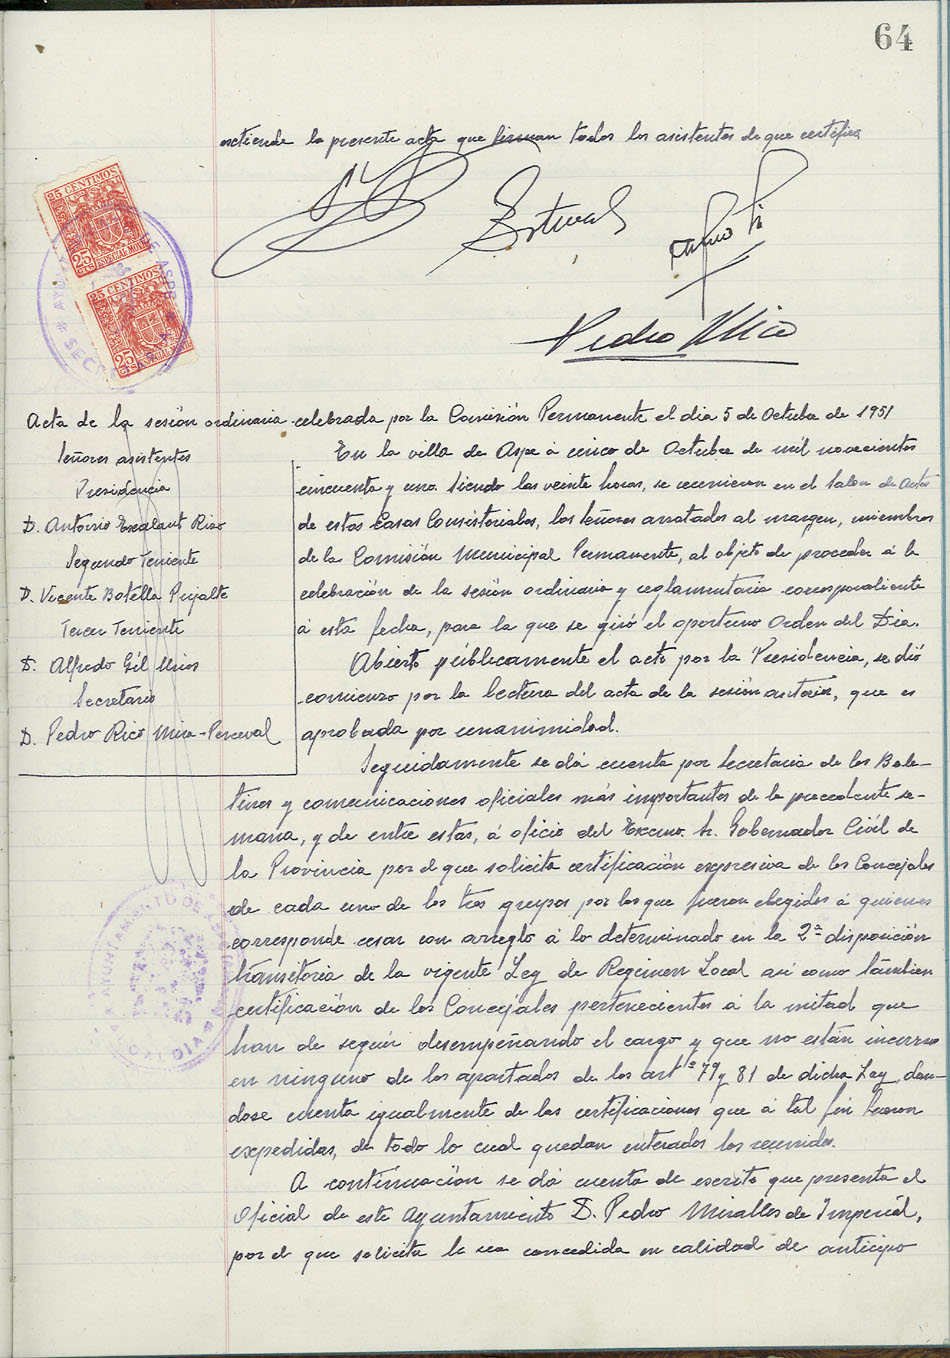 64
extiende la presente acta que firman todos los asistentes de que certifico
25 CENTIMOS
25 CTS
ESPECIAL MOVIL
25 CENTIMOS
25 CTS
ESPECIAL MOVIL
Pedro Rico
Acta de la sesión ordinaria celebrada por la Comisión Permanente el dia 5 de Octubre de 1951
Señores asistentes
Presidencia
D. Antonio Escalant Rico
Segundo Teniente
D. Vicente Botella Pujalte
Tercer Teniente
D. Alfredo Gil Mico
Secretario
D. Pedro Rico Mira-Perceval
En la villa de Aspe á cinco de Octubre de mil novecientos
cincuenta y uno. Siendo las veinte horas, se reunieron en el Salon de Actos
de estas Casas Consistoriales, los Señores anotados al margen, miembros
de la Comisión Municipal Permanente, al objeto de proceder á la
celebración de la sesión ordinaria y reglamentaria correspondiente
á esta fecha, para la que se giró el oportuno Orden del Dia.
Abierto públicamente el acto por la Presidencia, se dió
comienzo por la lectura del acta de la sesión anterior, que es
aprobada por unanimidad.
Seguidamente se dá cuenta por Secretaria de los Bole-
tines y comunicaciones oficiales más importantes de la precedente se-
mana, y de entre estas, á oficio del Excmo. Sr. Gobernador Civil de
la Provincia por el que solicita certificación expresiva de los Concejales
de cada uno de los tres grupos por los que fueron elegidos á quienes
corresponde cesar con arreglo á lo determinado en la 2ª disposición
transitoria de la vigente Ley de Regimen Local asi como tambien
certificación de los Concejales pertenecientes á la mitad que
han de seguir desempeñando el cargo y que no están incursos
en ninguno de los apartados de los artº 79 y 81 de dicha Ley, dan-
dose cuenta igualmente de las certificaciones que á tal fin fueron
expedidas, de todo lo cual quedan enterados los reunidos.
A continuación se dá cuenta de escrito que presenta el
Oficial de este Ayuntamiento D. Pedro Miralles de Imperial,
por el que solicita le sea concedida en calidad de anticipo